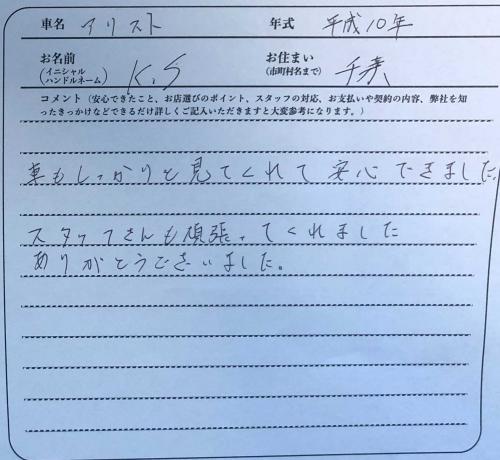 車名 アリスト 年式 平成10年
お名前 (イニシャル ハンドルネーム) K.S お住まい (市町村名まで) 千葉
コメント(安心できたこと、お店選びのポイント、スタッフの対応、お支払いや契約の内容、弊社を知
ったきっかけなどできるだけ詳しくご記入いただきますと大変参考になります。)
車もしっかりと見てくれて安心できました。
スタッフさんも頑張ってくれました
ありがとうございました。